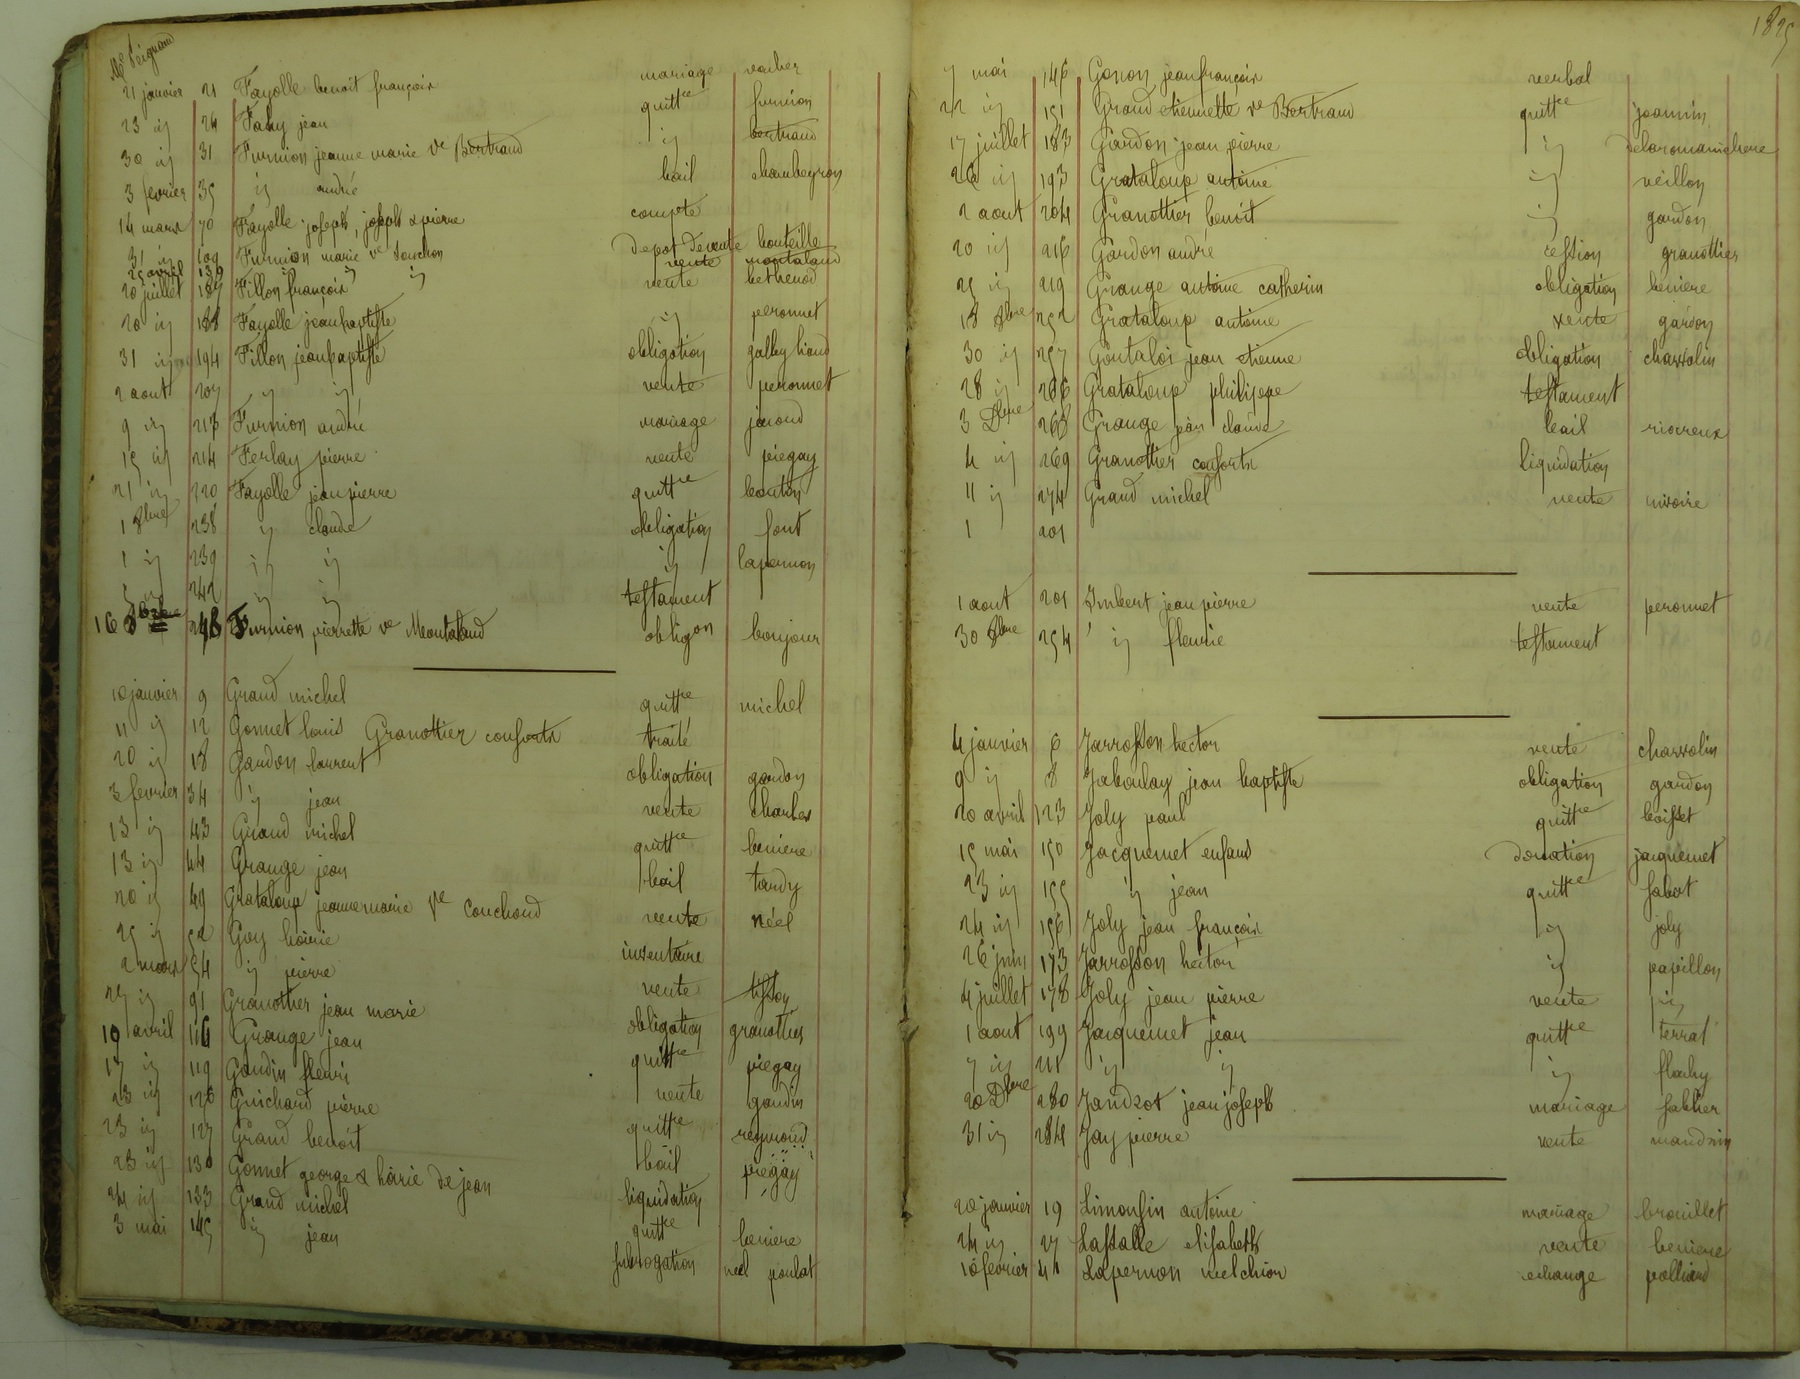 Me Peignaud
21 janvier 21 Fayolle benoit françois mariage vacher
23 ij 24 Fahy jean quittce furnion
30 ij 31 Furnion jeanne marie ve Bertrand ij bertrand
3 fevrier 35 ij andré bail chambeyron
14 mars 70 Fayolle joseph, joseph & pierre compte
31 ij 109 Furnion marie ve Souchon depot de vente bouteille
25 avril 139 ij ij vente montaland
20 juillet 187 Fillon françois vente bethenod
20 ij 188 Fayolle jean baptiste ij peronnet
31 ij 194 Fillon jean baptiste obligation galley liaud
2 aout 207 ij ij vente peronnet
9 ij 213 Furnion andré mariage jacoud
15 ij 214 Ferlay pierre vente piegay
21 ij 220 Fayolle jean pierre quittce bouton
1 8bre 238 ij claude obligation font
1 ij 239 ij ij ij lapernon
5 ij 242 ij ij testament
16 8bre 248 Furnion pierrette ve Montaland obligon bonjour
10 janvier 9 Grand michel quittce michel
11 ij 12 Gonnet louis Granottier consorts traité
20 ij 18 Gardon laurent obligation gardon
3 fevrier 34 ij jean vente charles
13 ij 43 Grand michel quittce beniere
13 ij 44 Grange jean bail tardy
20 ij 49 Grataloup jeanne marie Ve Couchoud vente néel
25 ij 52 Goy hoirie inventaire
2 mars 54 ij pierre vente tissoy
27 ij 91 Granottier jean marie obligation granottier
10 avril 116 Grange jean quittce piegay
17 ij 119 Gaudin fleuri vente gaudin
23 ij 126 Guichard pierre quittce reymond
23 ij 127 Grand benoit bail piegay
23 ij 130 Gonnet george & hoirie de jean liquidation
24 ij 133 Grand michel quittce beniere
3 mai 145 ij jean subrogation neel poulat
1825
7 mai 146 Gonon jean françois verbal
22 ij 151 Grand etiennette ve Bertrand quittce joannin
17 juillet 183 Gardon jean pierre ij Delaromanichere
26 ij 193 Grataloup antoine ij veillon
2 aout 204 Granottier benoit ij gardon
20 ij 216 Gardon andré cession granottier
25 ij 219 Grange antoine catherin obligation beniere
18 8bre 252 Grataloup antoine vente gardon
30 ij 257 Goutaloi jean etienne obligation chazzolin
28 ij 266 Grataloup philippe testament
3 Dbre 268 Grange jean claude bail riocreux
4 ij 269 Granottier consorts liquidation
11 ij 274 Grand michel vente nivoire
1 201
1 aout 201 Imbert jean pierre vente peronnet
30 8bre 254 ij fleurie testament
4 janvier 6 Jarrosson hector vente chazzolin
9 ij 8 Jaboulay jean baptiste obligation gardon
20 avril 123 Joly paul quittce boisset
15 mai 150 Jacquemet enfans donation jacquemet
23 ij 155 ij jean quittce fabot
24 ij 156 Joly jean françois ij joly
26 juin 173 Jarrosson hector ij papillon
4 juillet 178 Joly jean pierre vente ij
1 aout 199 Jacquemet jean quittce terrat
7 ij 211 ij ij ij flachy
20 Dbre 280 Jandzot jean joseph mariage fahlier
31 ij 284 Jay pierre vente maudrin
20 janvier 19 Limousin antoine mariage brouillet
24 ij 27 Lassalle elisabeth vente beniere
10 fevrier 41 Lapernon melchior echange palliard